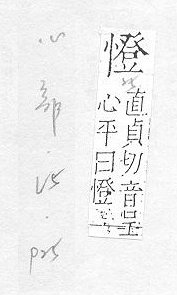 憕
直貞切音呈
心平曰憕
心部.15.
P25